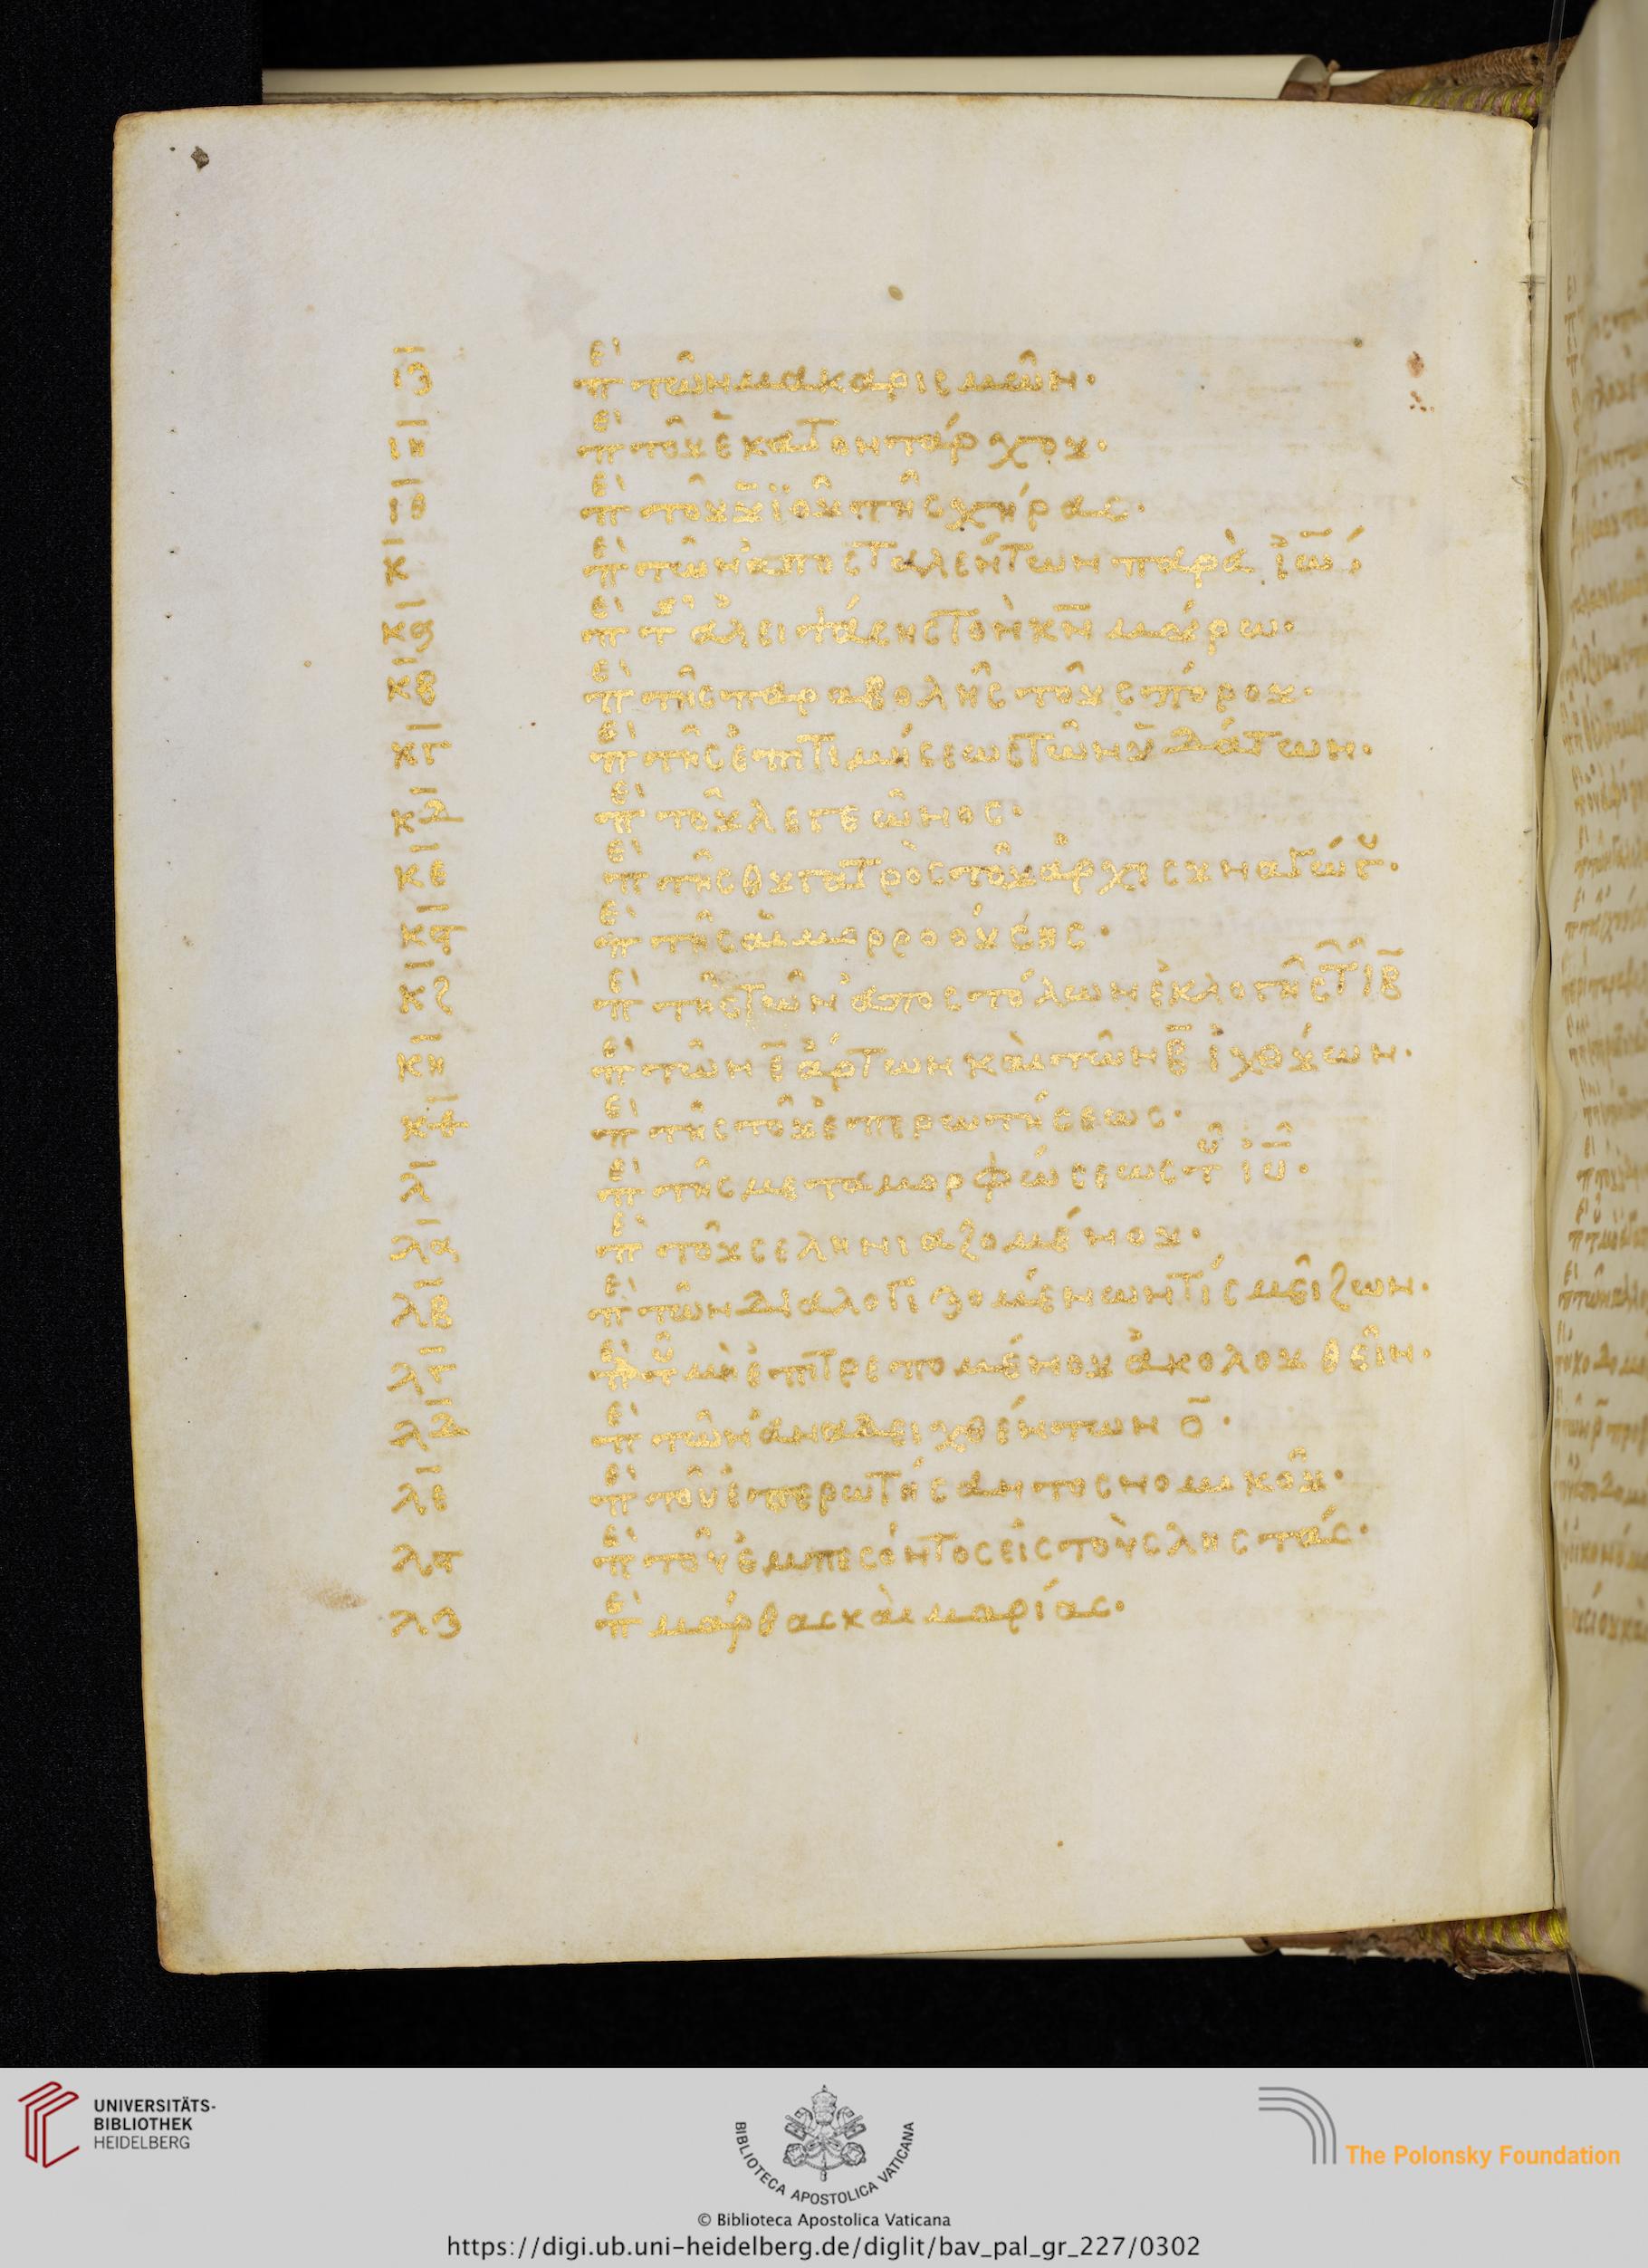 ιζ περὶ τῶν μακαρισμῶν·
ιη περὶ τοῦ ἑκατοντάρχου·
ιθ περὶ τοῦ υἱοῦ τῆς χήρας·
κ περὶ τῶν ἀποσταλέντων παρὰ ἰω·
κα περὶ τ ἀλειψάσης τὸν κν μύρω·
κβ περὶ τῆς παραβολῆς τοῦ σπόρου·
κγ περὶ τῆς ἐπιτιμήσεως τῶν ὑδάτων·
κδ περὶ τοῦ λεγεῶνος·
κε περὶ τῆς θυγατρὸς τοῦ ἀρχισυναγώγ·
κϛ περὶ τῆς αἱμορροούσης·
κζ περὶ τῆς τῶν ἀποστόλων ἐκλογῆς τ ιβ
κη περὶ τῶν ε ἄρτων καὶ τῶν β ἰχθύων·
κθ περὶ τῆς τοῦ ἐπερωτήσεως·
λ περὶ τῆς μεταμορφώσεως τοῦ ιυ·
λα περὶ τοῦ σεληνιαζομένου·
λβ περὶ τῶν διαλογιζομένων τίς μείζων·
λγ περὶ τοῦ μὴ ἐπιτρεπομένου ἀκολουθεῖν·
λδ περὶ τῶν ἀναδειχθέντων ο·
λε περὶ τοῦ ἐπερωτήσαντος νομικοῦ·
λϛ περὶ τοῦ ἐμπεσόντος εἰς τοὺς λῃστάς·
λζ περὶ μάρθας καὶ μαρίας·
UNIVERSITÄTS-
BIBLIOTHEK
HEIDELBERG
BIBLIOTECA APOSTOLICA VATICANA
The Polonsky Foundation
© Biblioteca Apostolica Vaticana
https://digi.ub.uni-heidelberg.de/diglit/bav_pal_gr_227/0302